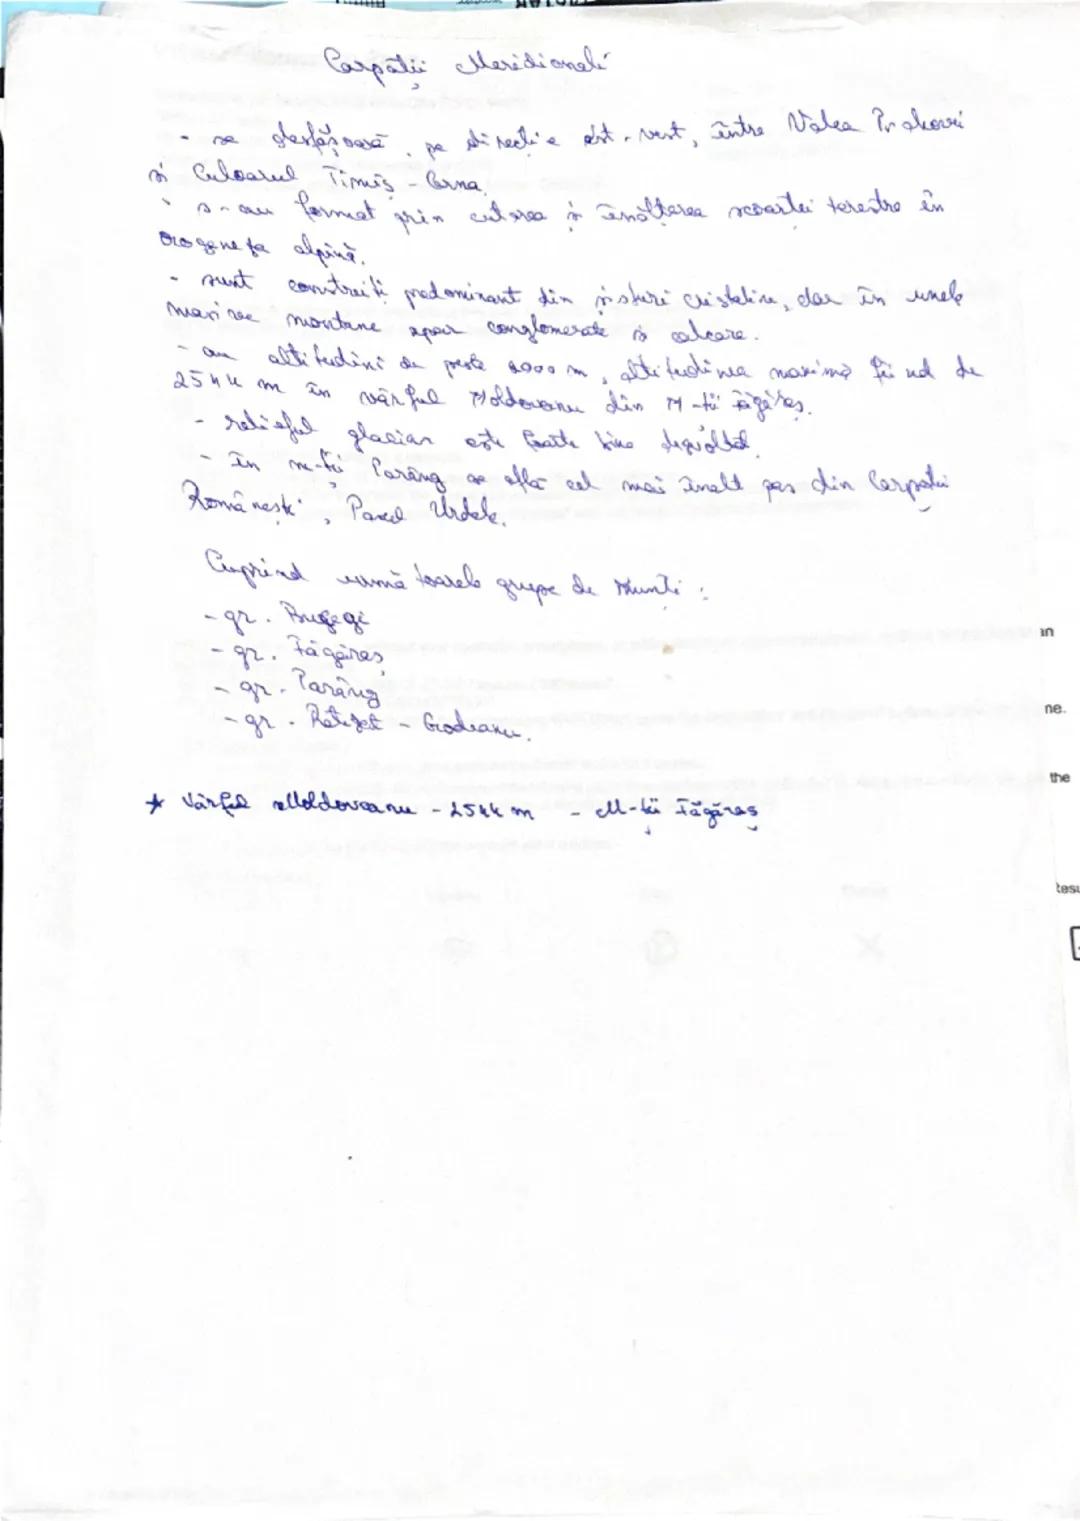 Carpații Meridionali
- se desfășoară pe direcție est-vest, între Valea Prahovei
și Culoarul Timiș - Cerna.
- s-au format prin cutarea și înălțarea scoarței terestre în
orogeneza alpină.
- sunt construiți predominant din șisturi cristaline, dar în unele
masivee montane apar conglomerate și calcare.
- au altitudini de peste 2000 m, altitudinea maximă fiind de
2544 m în vârful Moldoveanu din M-ții Făgăraș.
- relieful glaciar este foarte bine dezvoltat.
- în m-ții Parâng se află cel mai înalt pas din Carpații
Românești, Pasul Urdele.
Cuprind următoarele grupe de munți:
- gr. Bucegi
- gr. Făgăraș
- gr. Parâng
- gr. Retezat - Godeanu.
* Vârful Moldoveanu - 2544 m - M-ții Făgăraș
an
ne.
the